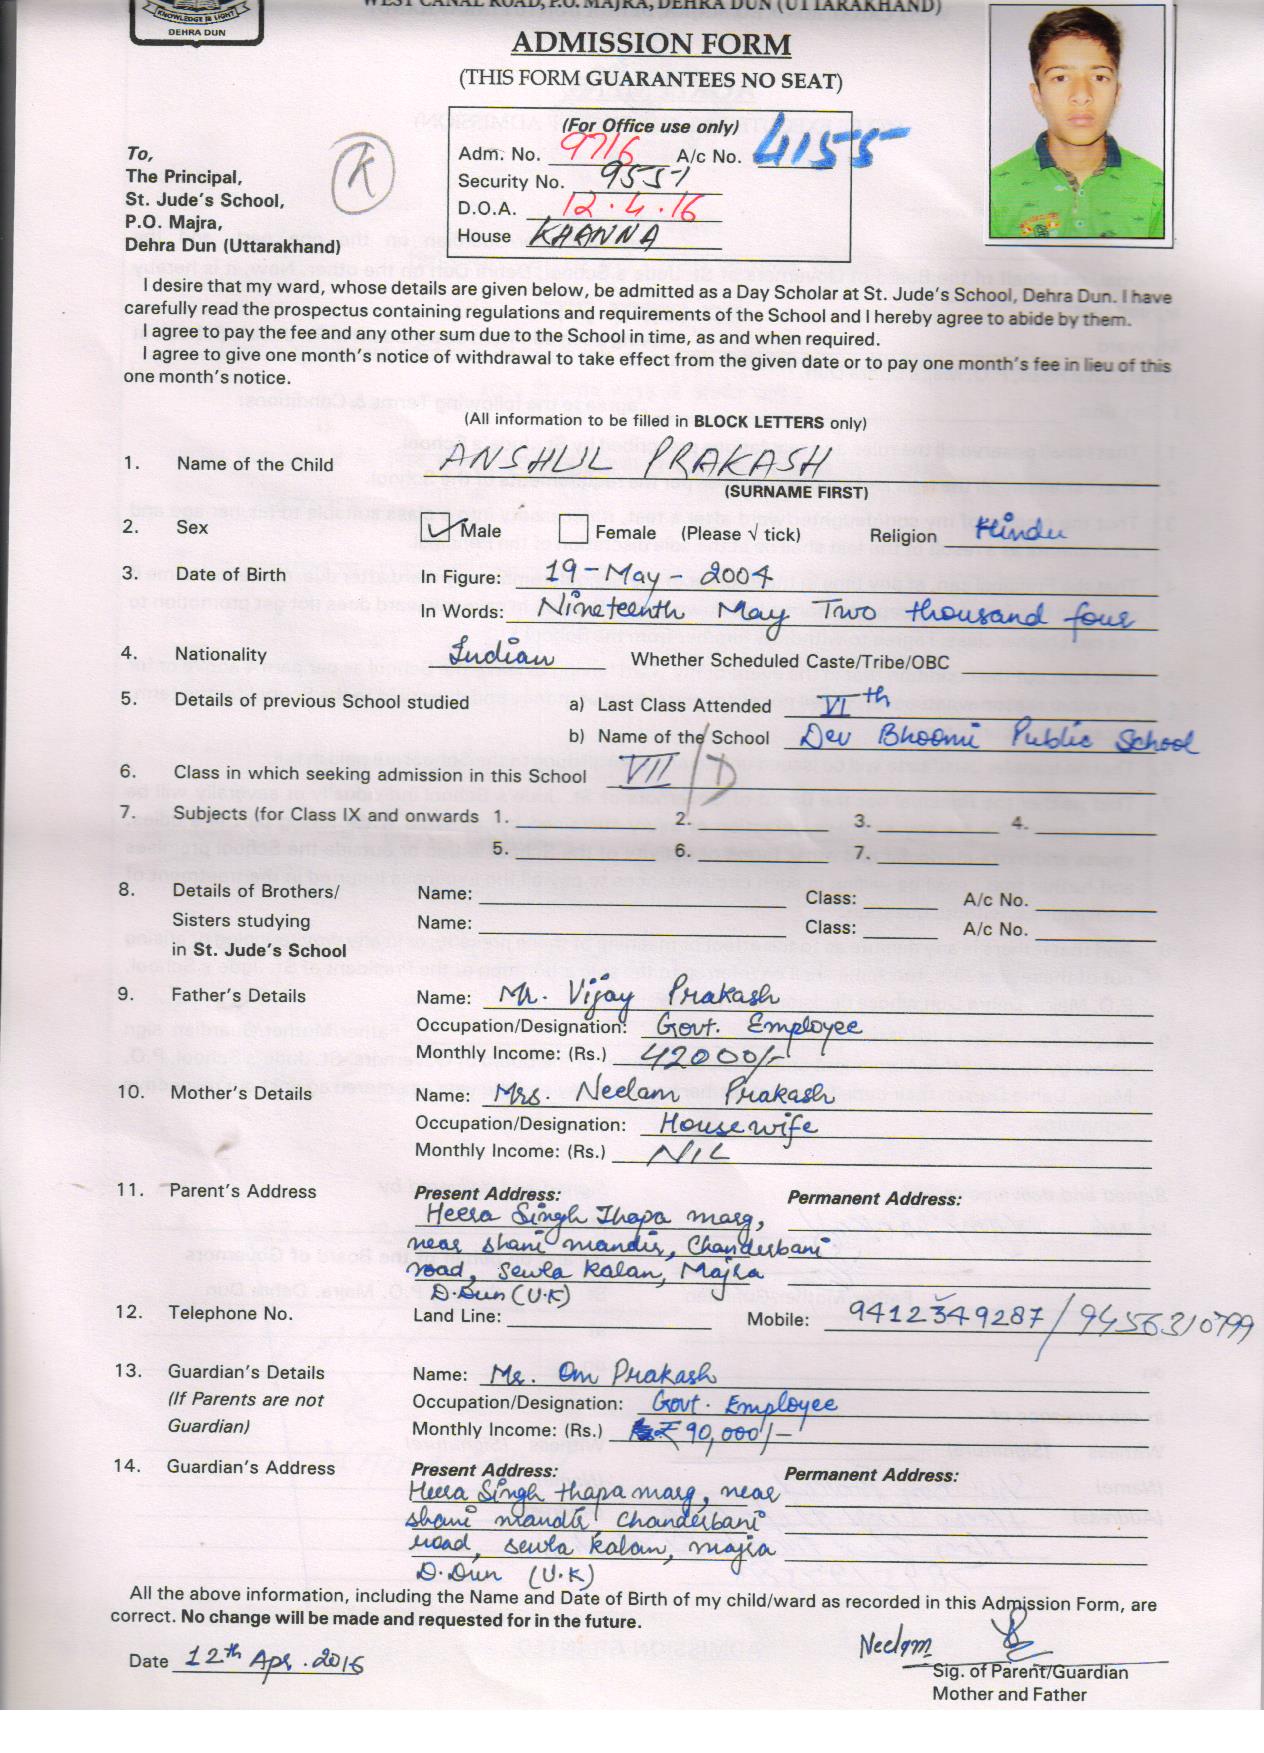 KNOWLEDGE IS LIGHT
DEHRA DUN
WEST CANAL ROAD, P.O. MAJRA, DEHRA DUN (UTTARAKHAND)
ADMISSION FORM
(THIS FORM GUARANTEES NO SEAT)
(For Office use only)
Adm. No. 9716 A/c No. 4155
Security No. 9551
D.O.A. 12.4.16
House KHANNA
K
To,
The Principal,
St. Jude's School,
P.O. Majra,
Dehra Dun (Uttarakhand)
I desire that my ward, whose details are given below, be admitted as a Day Scholar at St. Jude's School, Dehra Dun. I have
carefully read the prospectus containing regulations and requirements of the School and I hereby agree to abide by them.
I agree to pay the fee and any other sum due to the School in time, as and when required.
I agree to give one month's notice of withdrawal to take effect from the given date or to pay one month's fee in lieu of this
one month's notice.
(All information to be filled in BLOCK LETTERS only)
1. Name of the Child ANSHUL PRAKASH
(SURNAME FIRST)
2. Sex Male Female (Please √ tick) Religion Hindu
3. Date of Birth In Figure: 19-May-2004
In Words: Nineteenth May Two thousand four
4. Nationality Indian Whether Scheduled Caste/Tribe/OBC
5. Details of previous School studied a) Last Class Attended VIth
b) Name of the School Dev Bhoomi Public School
6. Class in which seeking admission in this School VII/D
7. Subjects (for Class IX and onwards 1. 2. 3. 4.
5. 6. 7.
8. Details of Brothers/ Name: Class: A/c No.
Sisters studying Name: Class: A/c No.
in St. Jude's School
9. Father's Details Name: Mr. Vijay Prakash
Occupation/Designation: Govt. Employee
Monthly Income: (Rs.) 42000/-
10. Mother's Details Name: Mrs. Neelam Prakash
Occupation/Designation: Housewife
Monthly Income: (Rs.) NIL
11. Parent's Address Present Address: Permanent Address:
Heera Singh Thapa marg,
near shani mandir, Chanderbani
road, sewla kalan, Majra
D.Dun (U.K)
12. Telephone No. Land Line: Mobile: 9412349287/9456310799
13. Guardian's Details Name: Mr. Om Prakash
(If Parents are not Occupation/Designation: Govt. Employee
Guardian) Monthly Income: (Rs.) ₹ 90,000/-
14. Guardian's Address Present Address: Permanent Address:
Heera Singh thapa marg, near
shani mandir, Chanderbani
road, sewla kalan, majra
D.Dun (U.K)
All the above information, including the Name and Date of Birth of my child/ward as recorded in this Admission Form, are
correct. No change will be made and requested for in the future.
Date 12th Apr. 2016 Neelam
Sig. of Parent/Guardian
Mother and Father